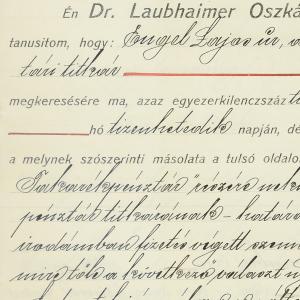 Én Dr. Laubhaimer Oszká
tanusitom, hogy: Engel Lajos úr, a
tári titkár
megkeresésére ma, azaz egyezerkilenczszáz t
hó tizenhetedik napján, dé
a melynek szószerinti másolata a tulsó oldalo
Takarékpénztár" részére nek
pénztár titkárának - határo
irodámban fizetés végett szem
mire tőle a következő választ n